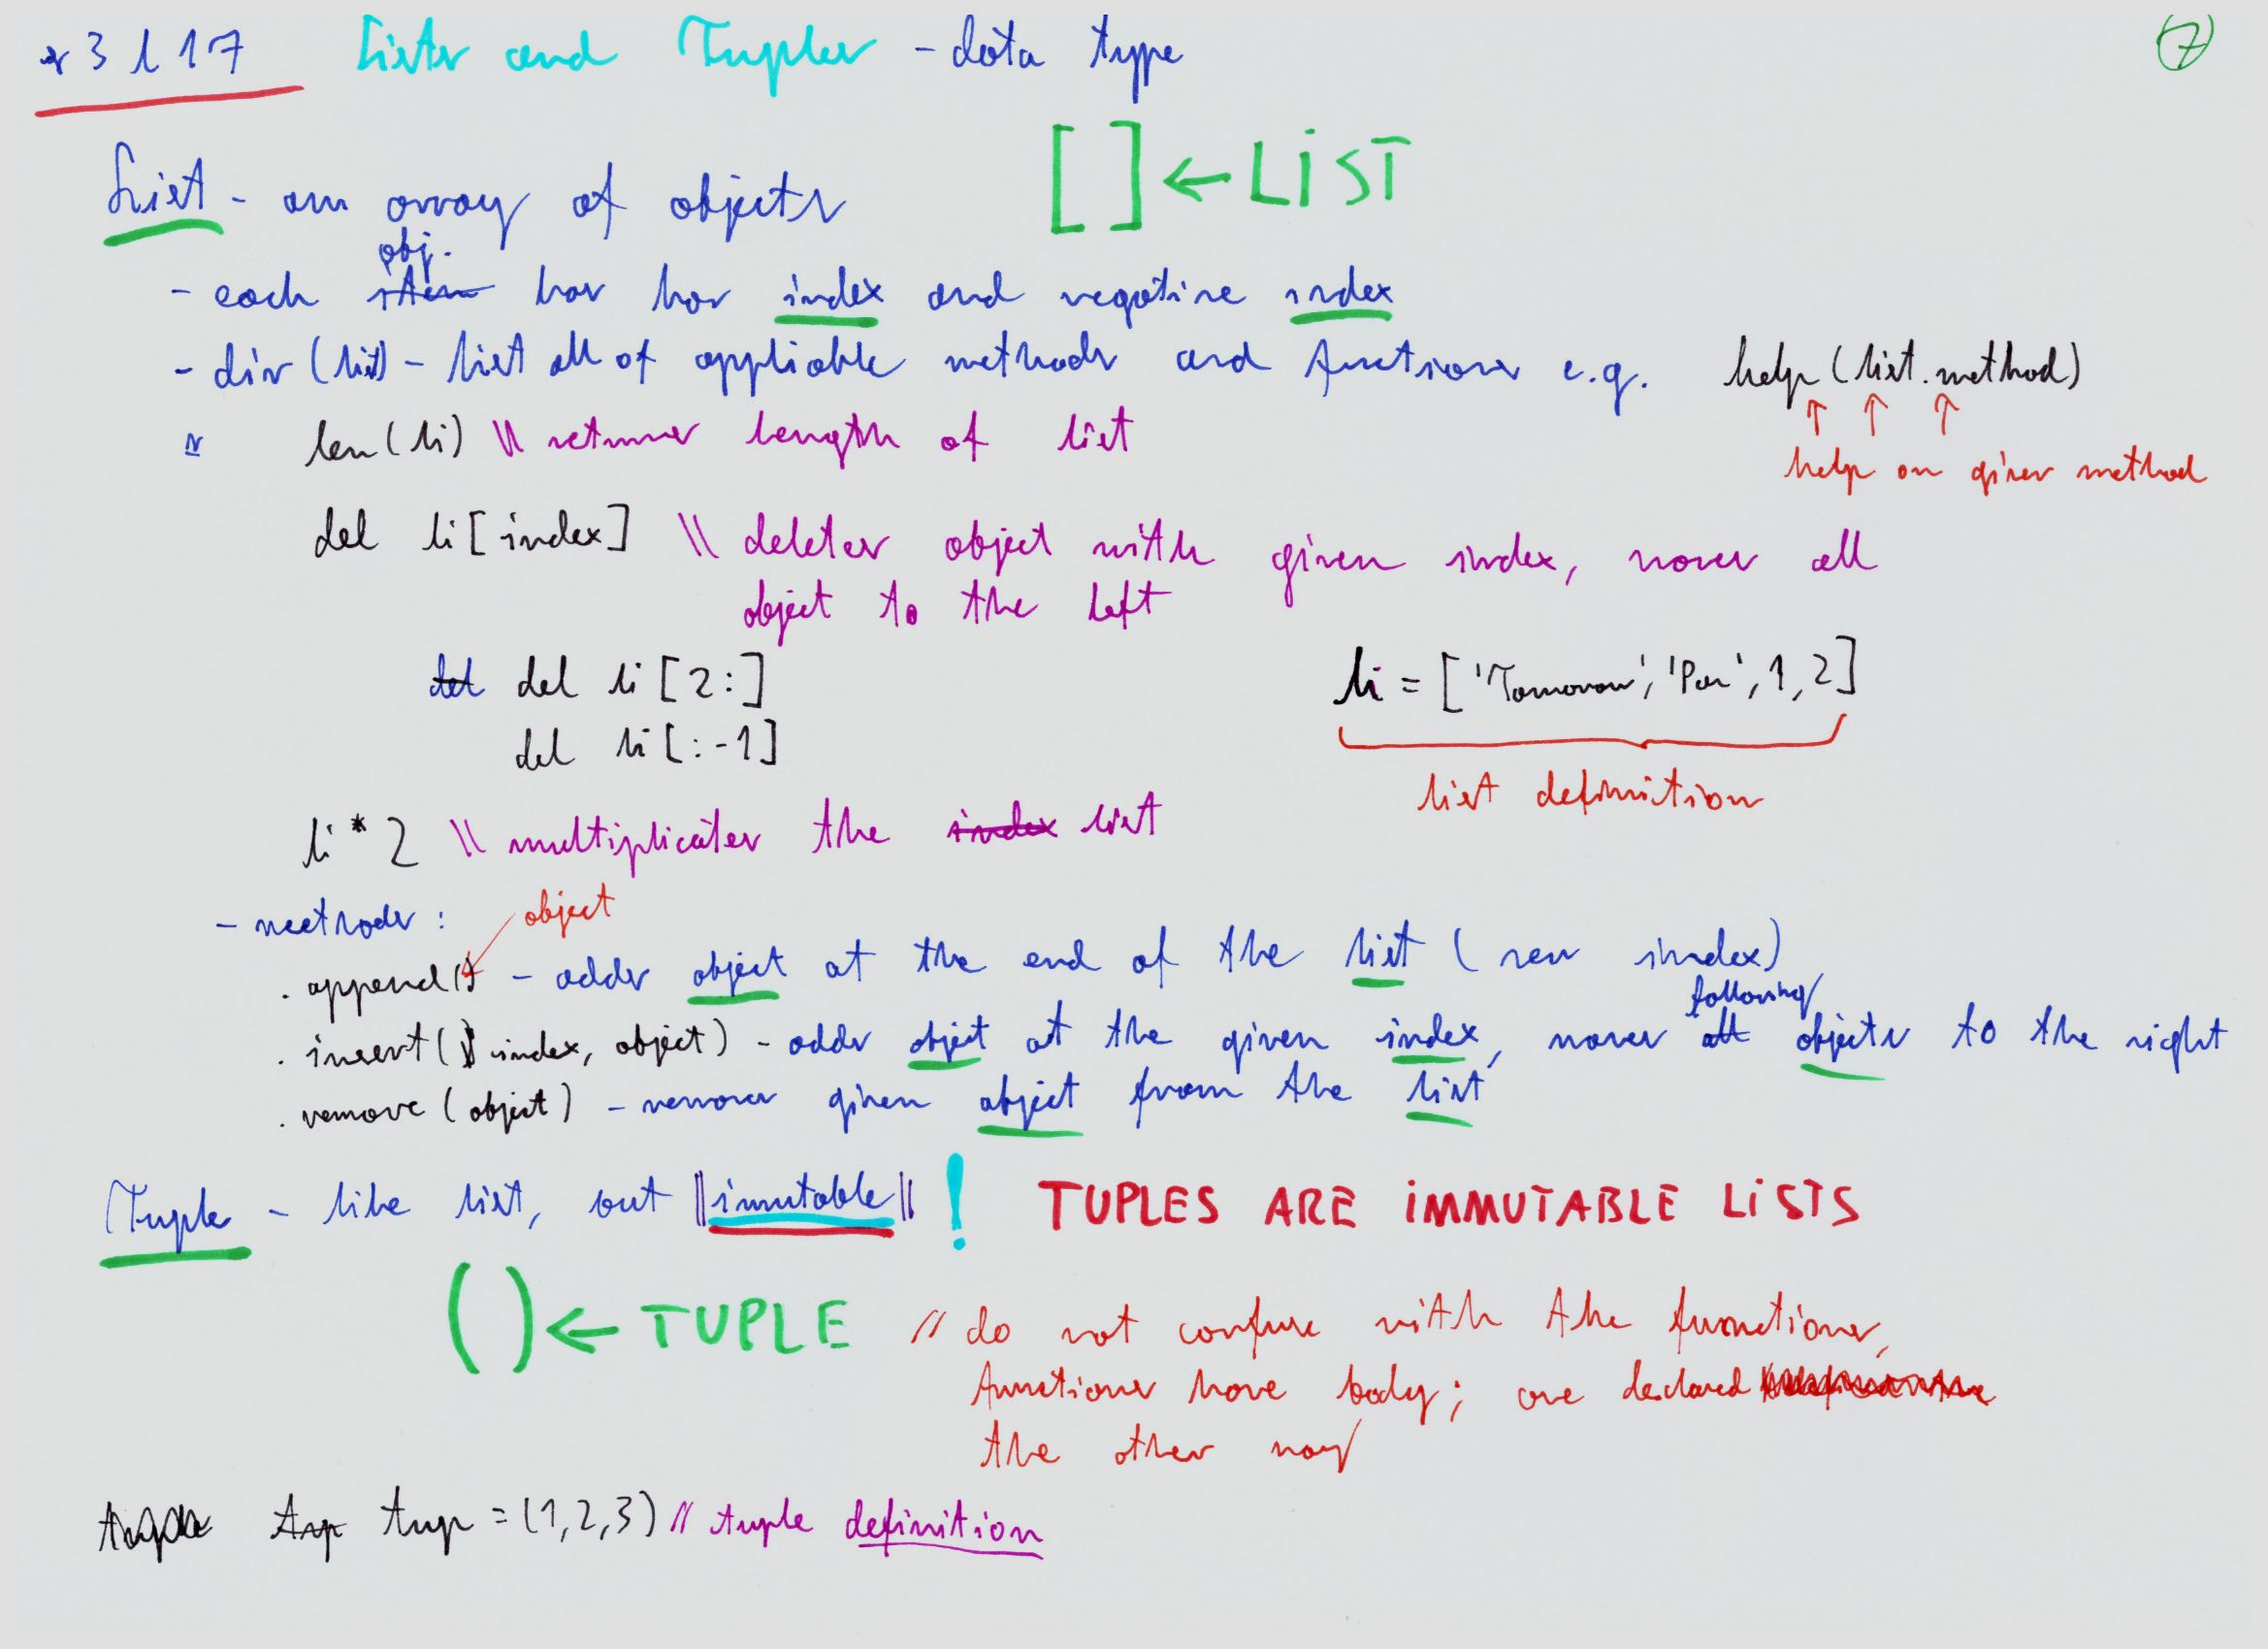 s3l17 Lists and Tuples - data type 7
List - an array of objects [ ] ← LIST
obj.
- each item has has index and negative index
- dir(list) - list all of appliable methods and functions e.g. help(list.method)
len(li) \\ returns length of list
help on given method
del li[index] \\ deletes object with given index, moves all
object to the left
del del li[2:]
li = ['Tomorrow', 'Pei', 1, 2]
del li[:-1]
list definition
li*2 \\ multiplicates the index list
object
- meethods:
.append() - adds object at the end of the list (new index)
following
.insert(index, object) - adds object at the given index, moves all objects to the right
.remove(object) - removes given object from the list
Tuple - like list, but ||imutable|| ! TUPLES ARE IMMUTABLE LISTS
( ) ← TUPLE // do not confuse with the functions,
functions have body; are declared
the other way
tuple tup tup = (1,2,3) // tuple definition